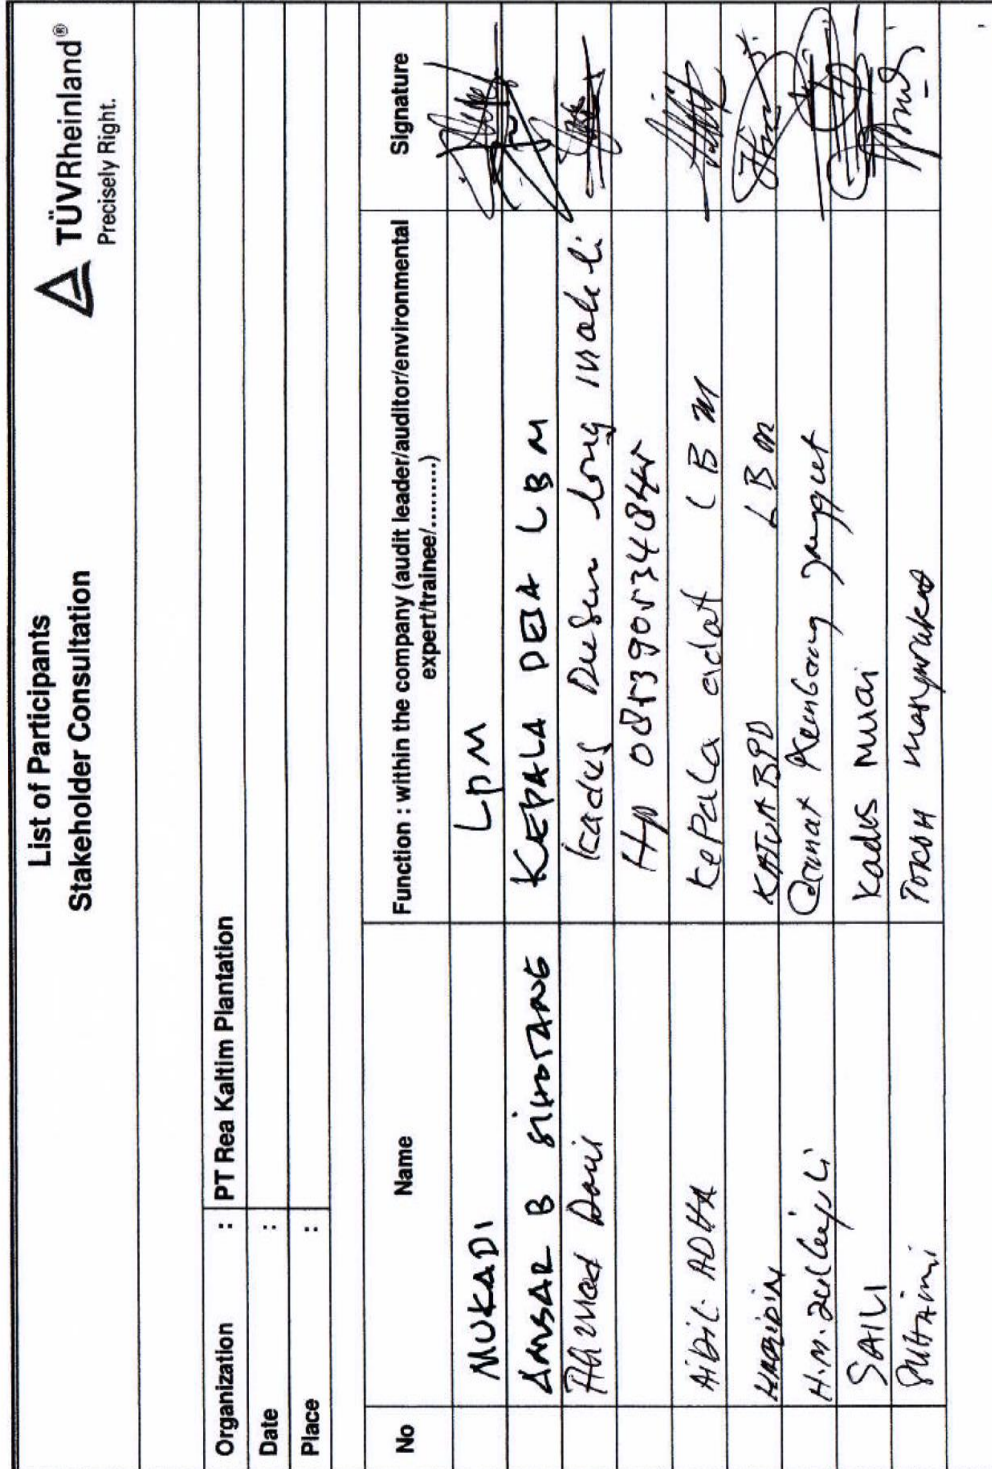 List of Participants
Stakeholder Consultation
TÜVRheinland®
Precisely Right.
Organization : PT Rea Kaltim Plantation
Date :
Place :
No Name Function : within the company (audit leader/auditor/environmental expert/trainee/.........) Signature
MUKADI LPM
ANSAR B KEPALA DESA LBM
Ahmad Kadus Dusun long
Hp
AiDiL ADHA Kepala adat LBM
KETUA BPD LBM
H.M. Kembang
SAILI Kadus Muai
SUHAimi TOKOH